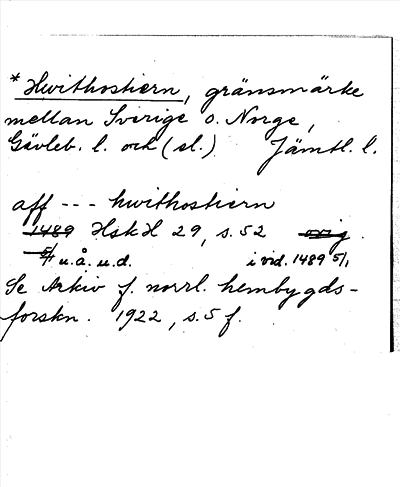 * Hwithostiern, gränsmärke
mellan Sverige o. Norge,
Gävleb. l. och (sl.) Jämtl. l.
aff --- hwithostiern
1489 HskH 29, s. 52 orig.
5/1 u.å. u.d. i vid. 1489 5/1
Se Arkiv f. norrl. hembygds-
forskn. 1922, s. 5 f.